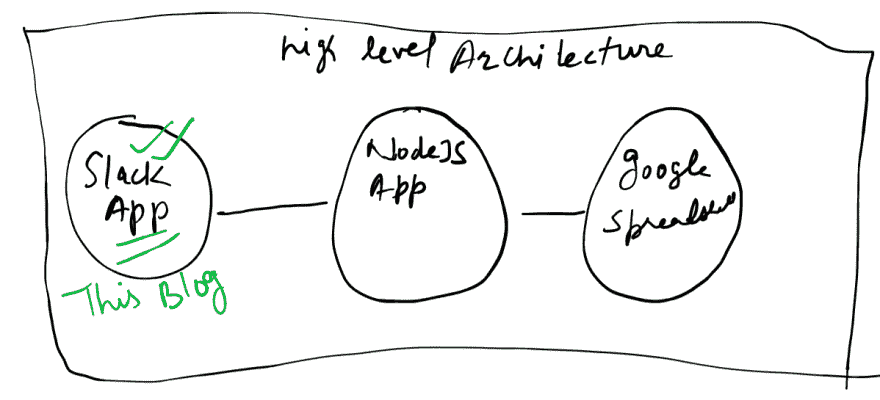 high level Architecture
Slack
App
This Blog
NodeJS
App
Google
Spreadsheet